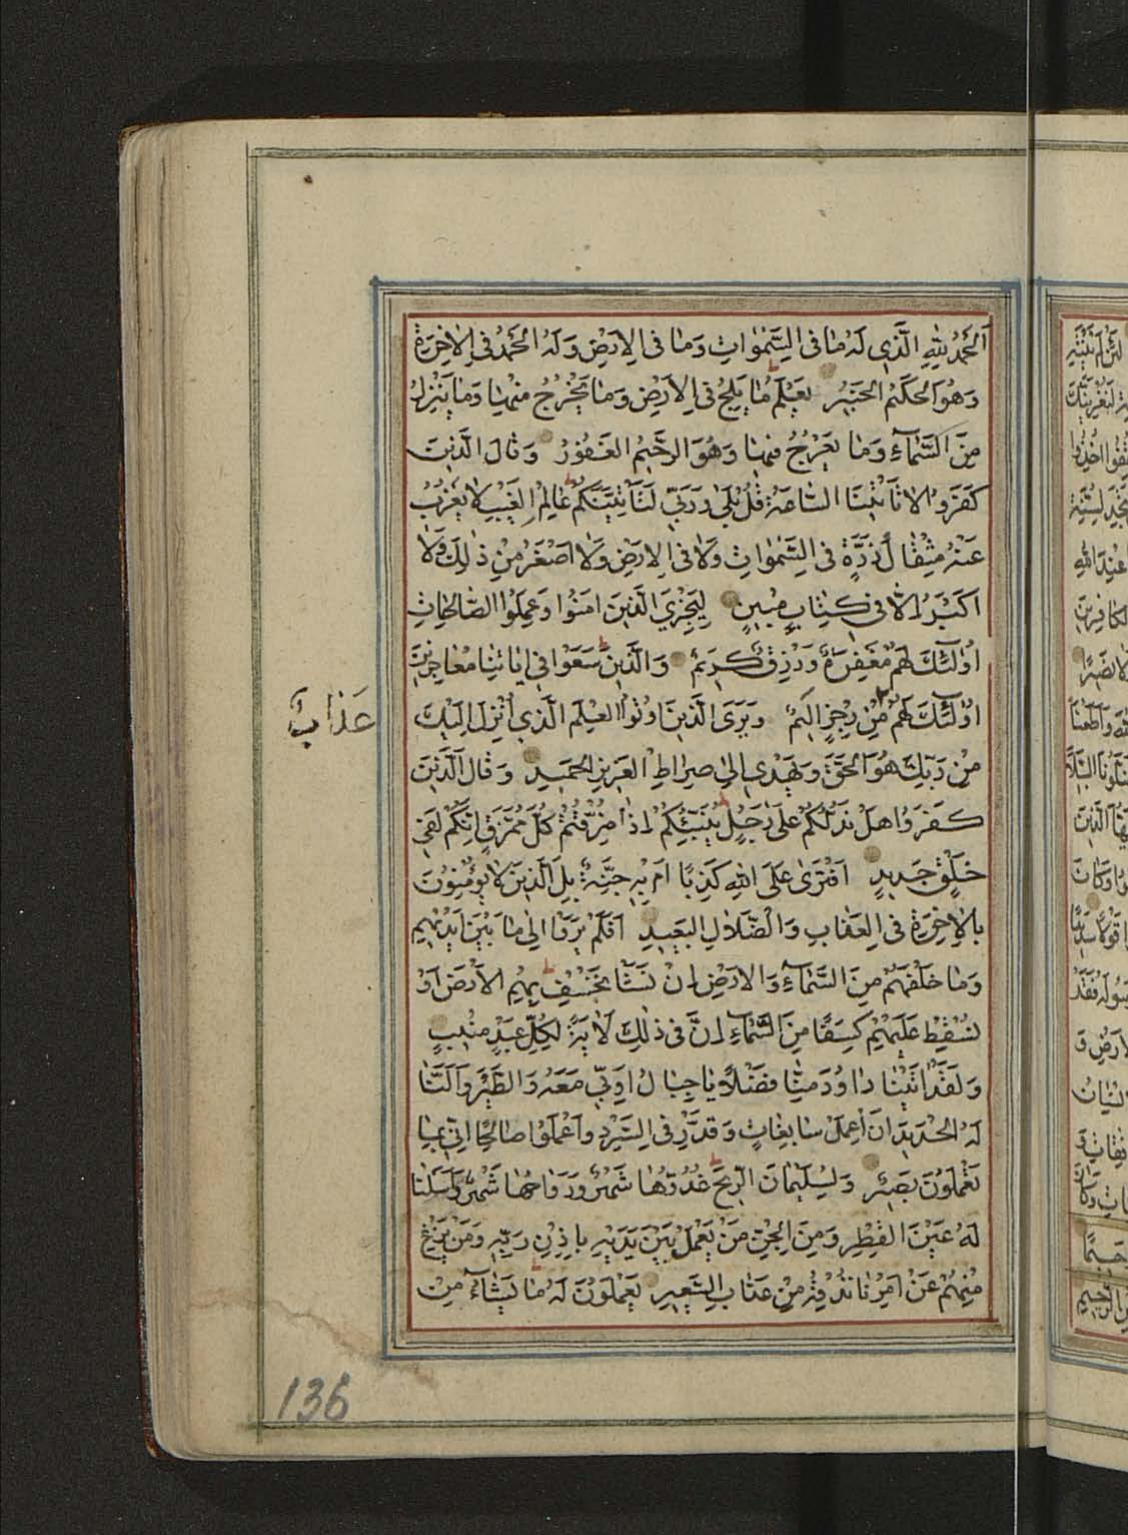 اَلْحَمْدُ لِلّٰهِ الَّذِي لَهُ مَا فِي السَّمٰوَاتِ وَمَا فِي الْاَرْضِ وَلَهُ الْحَمْدُ فِي الْاٰخِرَةِ
وَهُوَ الْحَكِيمُ الْخَبِيرُ يَعْلَمُ مَا يَلِجُ فِي الْاَرْضِ وَمَا يَخْرُجُ مِنْهَا وَمَا يَنْزِلُ
مِنَ السَّمَآءِ وَمَا يَعْرُجُ فِيهَا وَهُوَ الرَّحِيمُ الْغَفُورُ وَقَالَ الَّذِينَ
كَفَرُوا لَا تَأْتِينَا السَّاعَةُ قُلْ بَلٰى وَرَبِّي لَتَأْتِيَنَّكُمْ عَالِمِ الْغَيْبِ لَا يَعْزُبُ
عَنْهُ مِثْقَالُ ذَرَّةٍ فِي السَّمٰوَاتِ وَلَا فِي الْاَرْضِ وَلَا اَصْغَرُ مِنْ ذٰلِكَ وَلَا
اَكْبَرُ اِلَّا فِي كِتَابٍ مُبِينٍ لِيَجْزِيَ الَّذِينَ اٰمَنُوا وَعَمِلُوا الصَّالِحَاتِ
اُولٰٓئِكَ لَهُمْ مَغْفِرَةٌ وَرِزْقٌ كَرِيمٌ وَالَّذِينَ سَعَوْا فِي اٰيَاتِنَا مُعَاجِزِينَ
اُولٰٓئِكَ لَهُمْ مِنْ رِجْزٍ اَلِيمٌ وَيَرَى الَّذِينَ اُوتُوا الْعِلْمَ الَّذِي اُنْزِلَ اِلَيْكَ
عَذَابٌ
مِنْ رَبِّكَ هُوَ الْحَقَّ وَيَهْدِي اِلٰى صِرَاطِ الْعَزِيزِ الْحَمِيدِ وَقَالَ الَّذِينَ
كَفَرُوا هَلْ نَدُلُّكُمْ عَلٰى رَجُلٍ يُنَبِّئُكُمْ اِذَا مُزِّقْتُمْ كُلَّ مُمَزَّقٍ اِنَّكُمْ لَفِي
خَلْقٍ جَدِيدٍ اَفْتَرٰى عَلَى اللّٰهِ كَذِبًا اَمْ بِهِ جِنَّةٌ بَلِ الَّذِينَ لَا يُؤْمِنُونَ
بِالْاٰخِرَةِ فِي الْعَذَابِ وَالضَّلَالِ الْبَعِيدِ اَفَلَمْ يَرَوْا اِلٰى مَا بَيْنَ اَيْدِيهِمْ
وَمَا خَلْفَهُمْ مِنَ السَّمَآءِ وَالْاَرْضِ اِنْ نَشَأْ نَخْسِفْ بِهِمُ الْاَرْضَ اَوْ
نُسْقِطْ عَلَيْهِمْ كِسَفًا مِنَ السَّمَآءِ اِنَّ فِي ذٰلِكَ لَاٰيَةً لِكُلِّ عَبْدٍ مُنِيبٍ
وَلَقَدْ اٰتَيْنَا دَاوُدَ مِنَّا فَضْلًا يَا جِبَالُ اَوِّبِي مَعَهُ وَالطَّيْرَ وَاَلَنَّا
لَهُ الْحَدِيدَ اَنِ اعْمَلْ سَابِغَاتٍ وَقَدِّرْ فِي السَّرْدِ وَاعْمَلُوا صَالِحًا اِنِّي بِمَا
تَعْمَلُونَ بَصِيرٌ وَلِسُلَيْمَانَ الرِّيحَ غُدُوُّهَا شَهْرٌ وَرَوَاحُهَا شَهْرٌ وَاَسَلْنَا
لَهُ عَيْنَ الْقِطْرِ وَمِنَ الْجِنِّ مَنْ يَعْمَلُ بَيْنَ يَدَيْهِ بِاِذْنِ رَبِّهِ وَمَنْ يَزِغْ
مِنْهُمْ عَنْ اَمْرِنَا نُذِقْهُ مِنْ عَذَابِ السَّعِيرِ يَعْمَلُونَ لَهُ مَا يَشَآءُ مِنْ
136